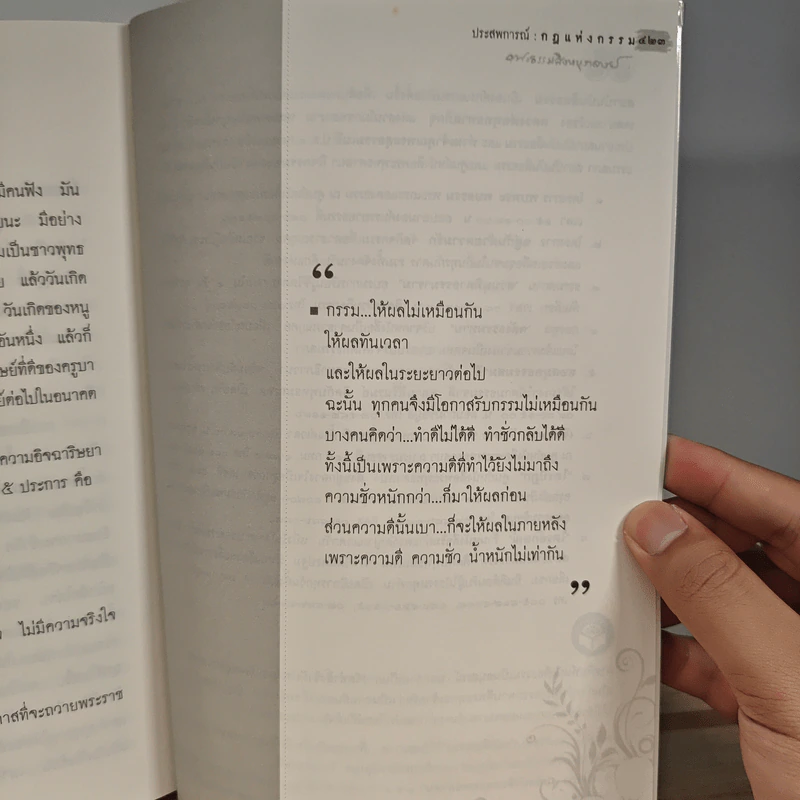 มีคนฟัง มัน
นะ มีอย่าง
เป็นชาวพุทธ
แล้ววันเกิด
วันเกิดของหนู
อันหนึ่ง แล้วก็
ที่ดีของครูบา
ต่อไปในอนาคต
ความอิจฉาริษยา
๕ ประการ คือ
ไม่มีความจริงใจ
ที่จะถวายพระราช
ประสพการณ์ : กฎแห่งกรรม ๔๒๓
“
■ กรรม...ให้ผลไม่เหมือนกัน
ให้ผลทันเวลา
และให้ผลในระยะยาวต่อไป
ฉะนั้น ทุกคนจึงมีโอกาสรับกรรมไม่เหมือนกัน
บางคนคิดว่า...ทำดีไม่ได้ดี ทำชั่วกลับได้ดี
ทั้งนี้เป็นเพราะความดีที่ทำไว้ยังไม่มาถึง
ความชั่วหนักกว่า...ก็มาให้ผลก่อน
ส่วนความดีนั้นเบา...ก็จะให้ผลในภายหลัง
เพราะความดี ความชั่ว น้ำหนักไม่เท่ากัน
”